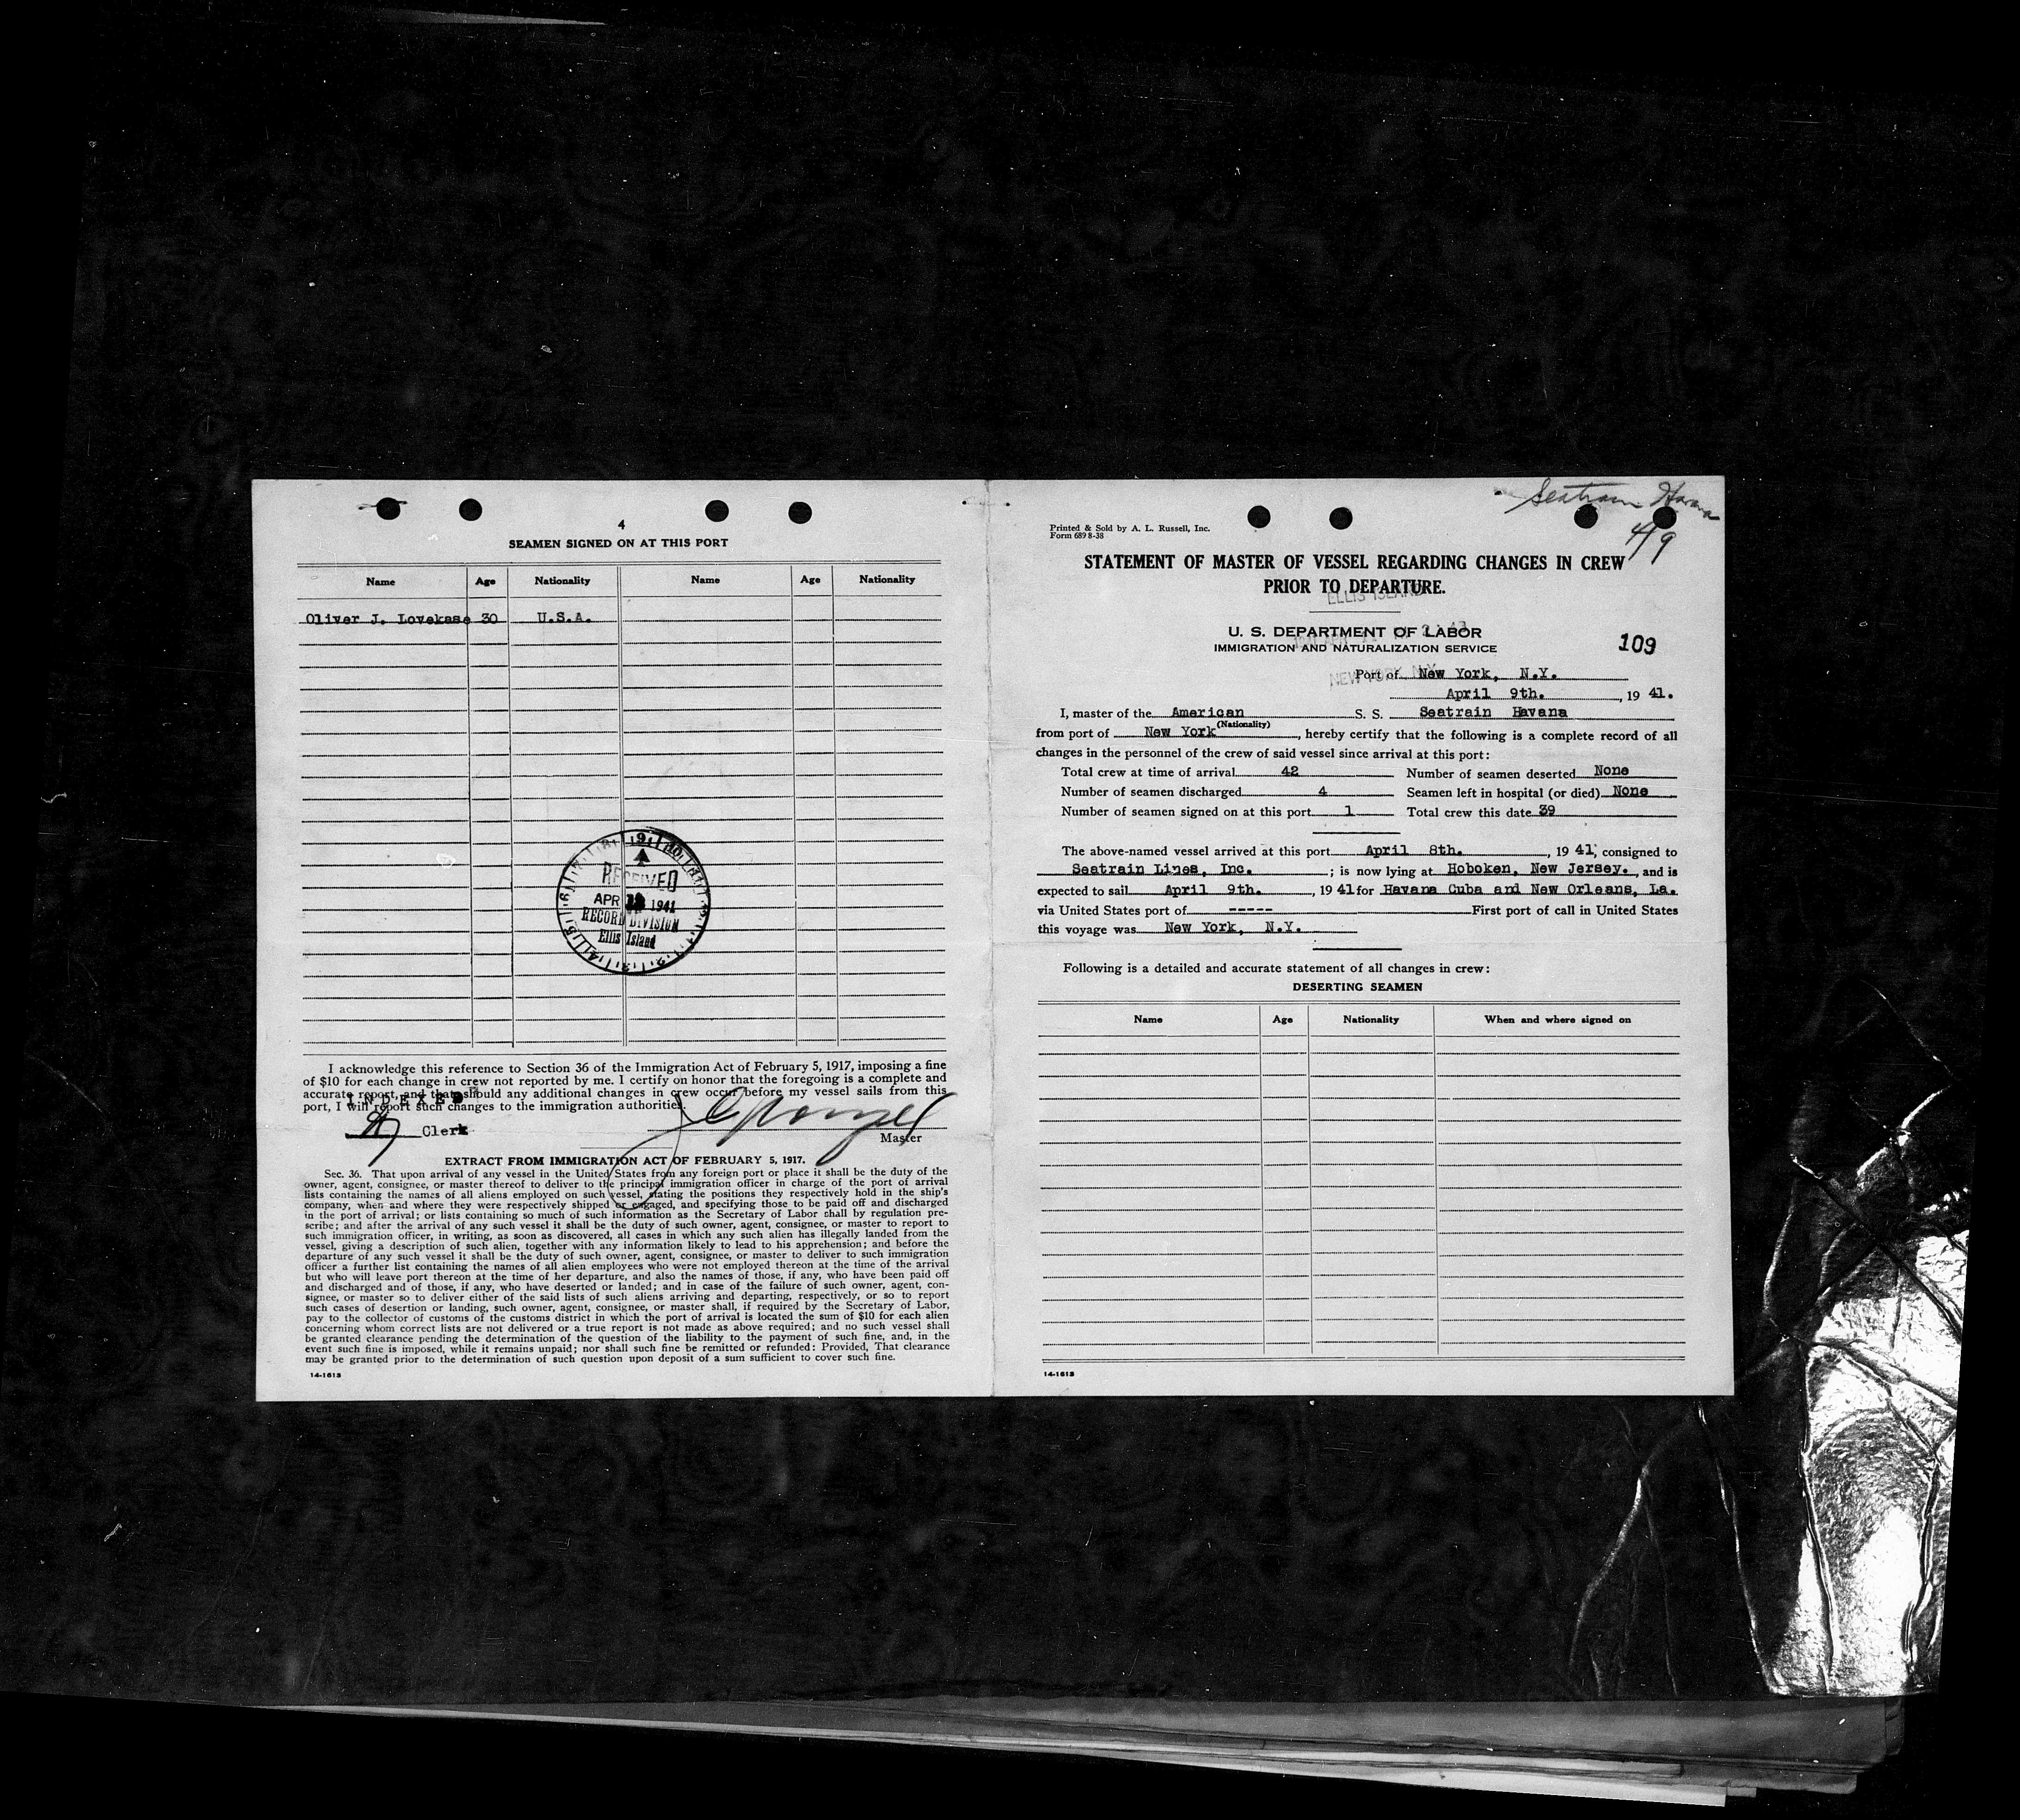 4
SEAMEN SIGNED ON AT THIS PORT
Name Age Nationality Name Age Nationality
Oliver J. Lovekase 30 U.S.A.
9
RECEIVED
APR 1941
RECORD DIVISION
Ellis Island
I acknowledge this reference to Section 36 of the Immigration Act of February 5, 1917, imposing a fine
of $10 for each change in crew not reported by me. I certify on honor that the foregoing is a complete and
accurate report, and that should any additional changes in crew occur before my vessel sails from this
port, I will report such changes to the immigration authorities.
INDEXED
Clerk
Master
EXTRACT FROM IMMIGRATION ACT OF FEBRUARY 5, 1917.
Sec. 36. That upon arrival of any vessel in the United States from any foreign port or place it shall be the duty of the
owner, agent, consignee, or master thereof to deliver to the principal immigration officer in charge of the port of arrival
lists containing the names of all aliens employed on such vessel, stating the positions they respectively hold in the ship's
company, when and where they were respectively shipped or engaged, and specifying those to be paid off and discharged
in the port of arrival; or lists containing so much of such information as the Secretary of Labor shall by regulation pre-
scribe; and after the arrival of any such vessel it shall be the duty of such owner, agent, consignee, or master to report to
such immigration officer, in writing, as soon as discovered, all cases in which any such alien has illegally landed from the
vessel, giving a description of such alien, together with any information likely to lead to his apprehension; and before the
departure of any such vessel it shall be the duty of such owner, agent, consignee, or master to deliver to such immigration
officer a further list containing the names of all alien employees who were not employed thereon at the time of the arrival
but who will leave port thereon at the time of her departure, and also the names of those, if any, who have been paid off
and discharged and of those, if any, who have deserted or landed; and in case of the failure of such owner, agent, con-
signee, or master so to deliver either of the said lists of such aliens arriving and departing, respectively, or so to report
such cases of desertion or landing, such owner, agent, consignee, or master shall, if required by the Secretary of Labor,
pay to the collector of customs of the customs district in which the port of arrival is located the sum of $10 for each alien
concerning whom correct lists are not delivered or a true report is not made as above required; and no such vessel shall
be granted clearance pending the determination of the question of the liability to the payment of such fine, and, in the
event such fine is imposed, while it remains unpaid; nor shall such fine be remitted or refunded: Provided, That clearance
may be granted prior to the determination of such question upon deposit of a sum sufficient to cover such fine.
14-1613
Seatrain Havana
4/9
Printed & Sold by A. L. Russell, Inc.
Form 689 8-38
STATEMENT OF MASTER OF VESSEL REGARDING CHANGES IN CREW
PRIOR TO DEPARTURE.
ELLIS ISLAND
U. S. DEPARTMENT OF LABOR
IMMIGRATION AND NATURALIZATION SERVICE
109
NEW YORK, N.Y.
Port of New York, N.Y.
April 9th. , 19 41.
I, master of the American S. S. Seatrain Havana
(Nationality)
from port of New York , hereby certify that the following is a complete record of all
changes in the personnel of the crew of said vessel since arrival at this port:
Total crew at time of arrival 42 Number of seamen deserted None
Number of seamen discharged 4 Seamen left in hospital (or died) None
Number of seamen signed on at this port 1 Total crew this date 39
The above-named vessel arrived at this port April 8th. , 19 41, consigned to
Seatrain Lines, Inc. ; is now lying at Hoboken, New Jersey. , and is
expected to sail April 9th. , 19 41 for Havana Cuba and New Orleans, La.
via United States port of ----- First port of call in United States
this voyage was New York, N.Y.
Following is a detailed and accurate statement of all changes in crew:
DESERTING SEAMEN
Name Age Nationality When and where signed on
14-1613